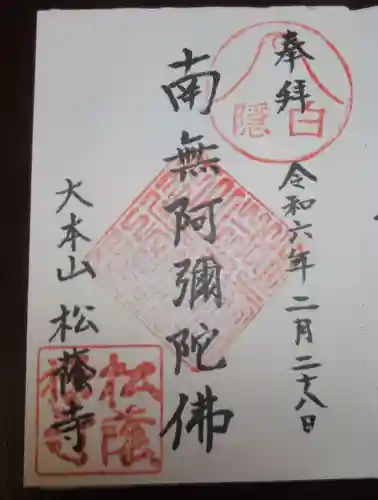 奉拝
白隠
令和六年二月二十八日
南無阿彌陀佛
大本山 松蔭寺
松蔭